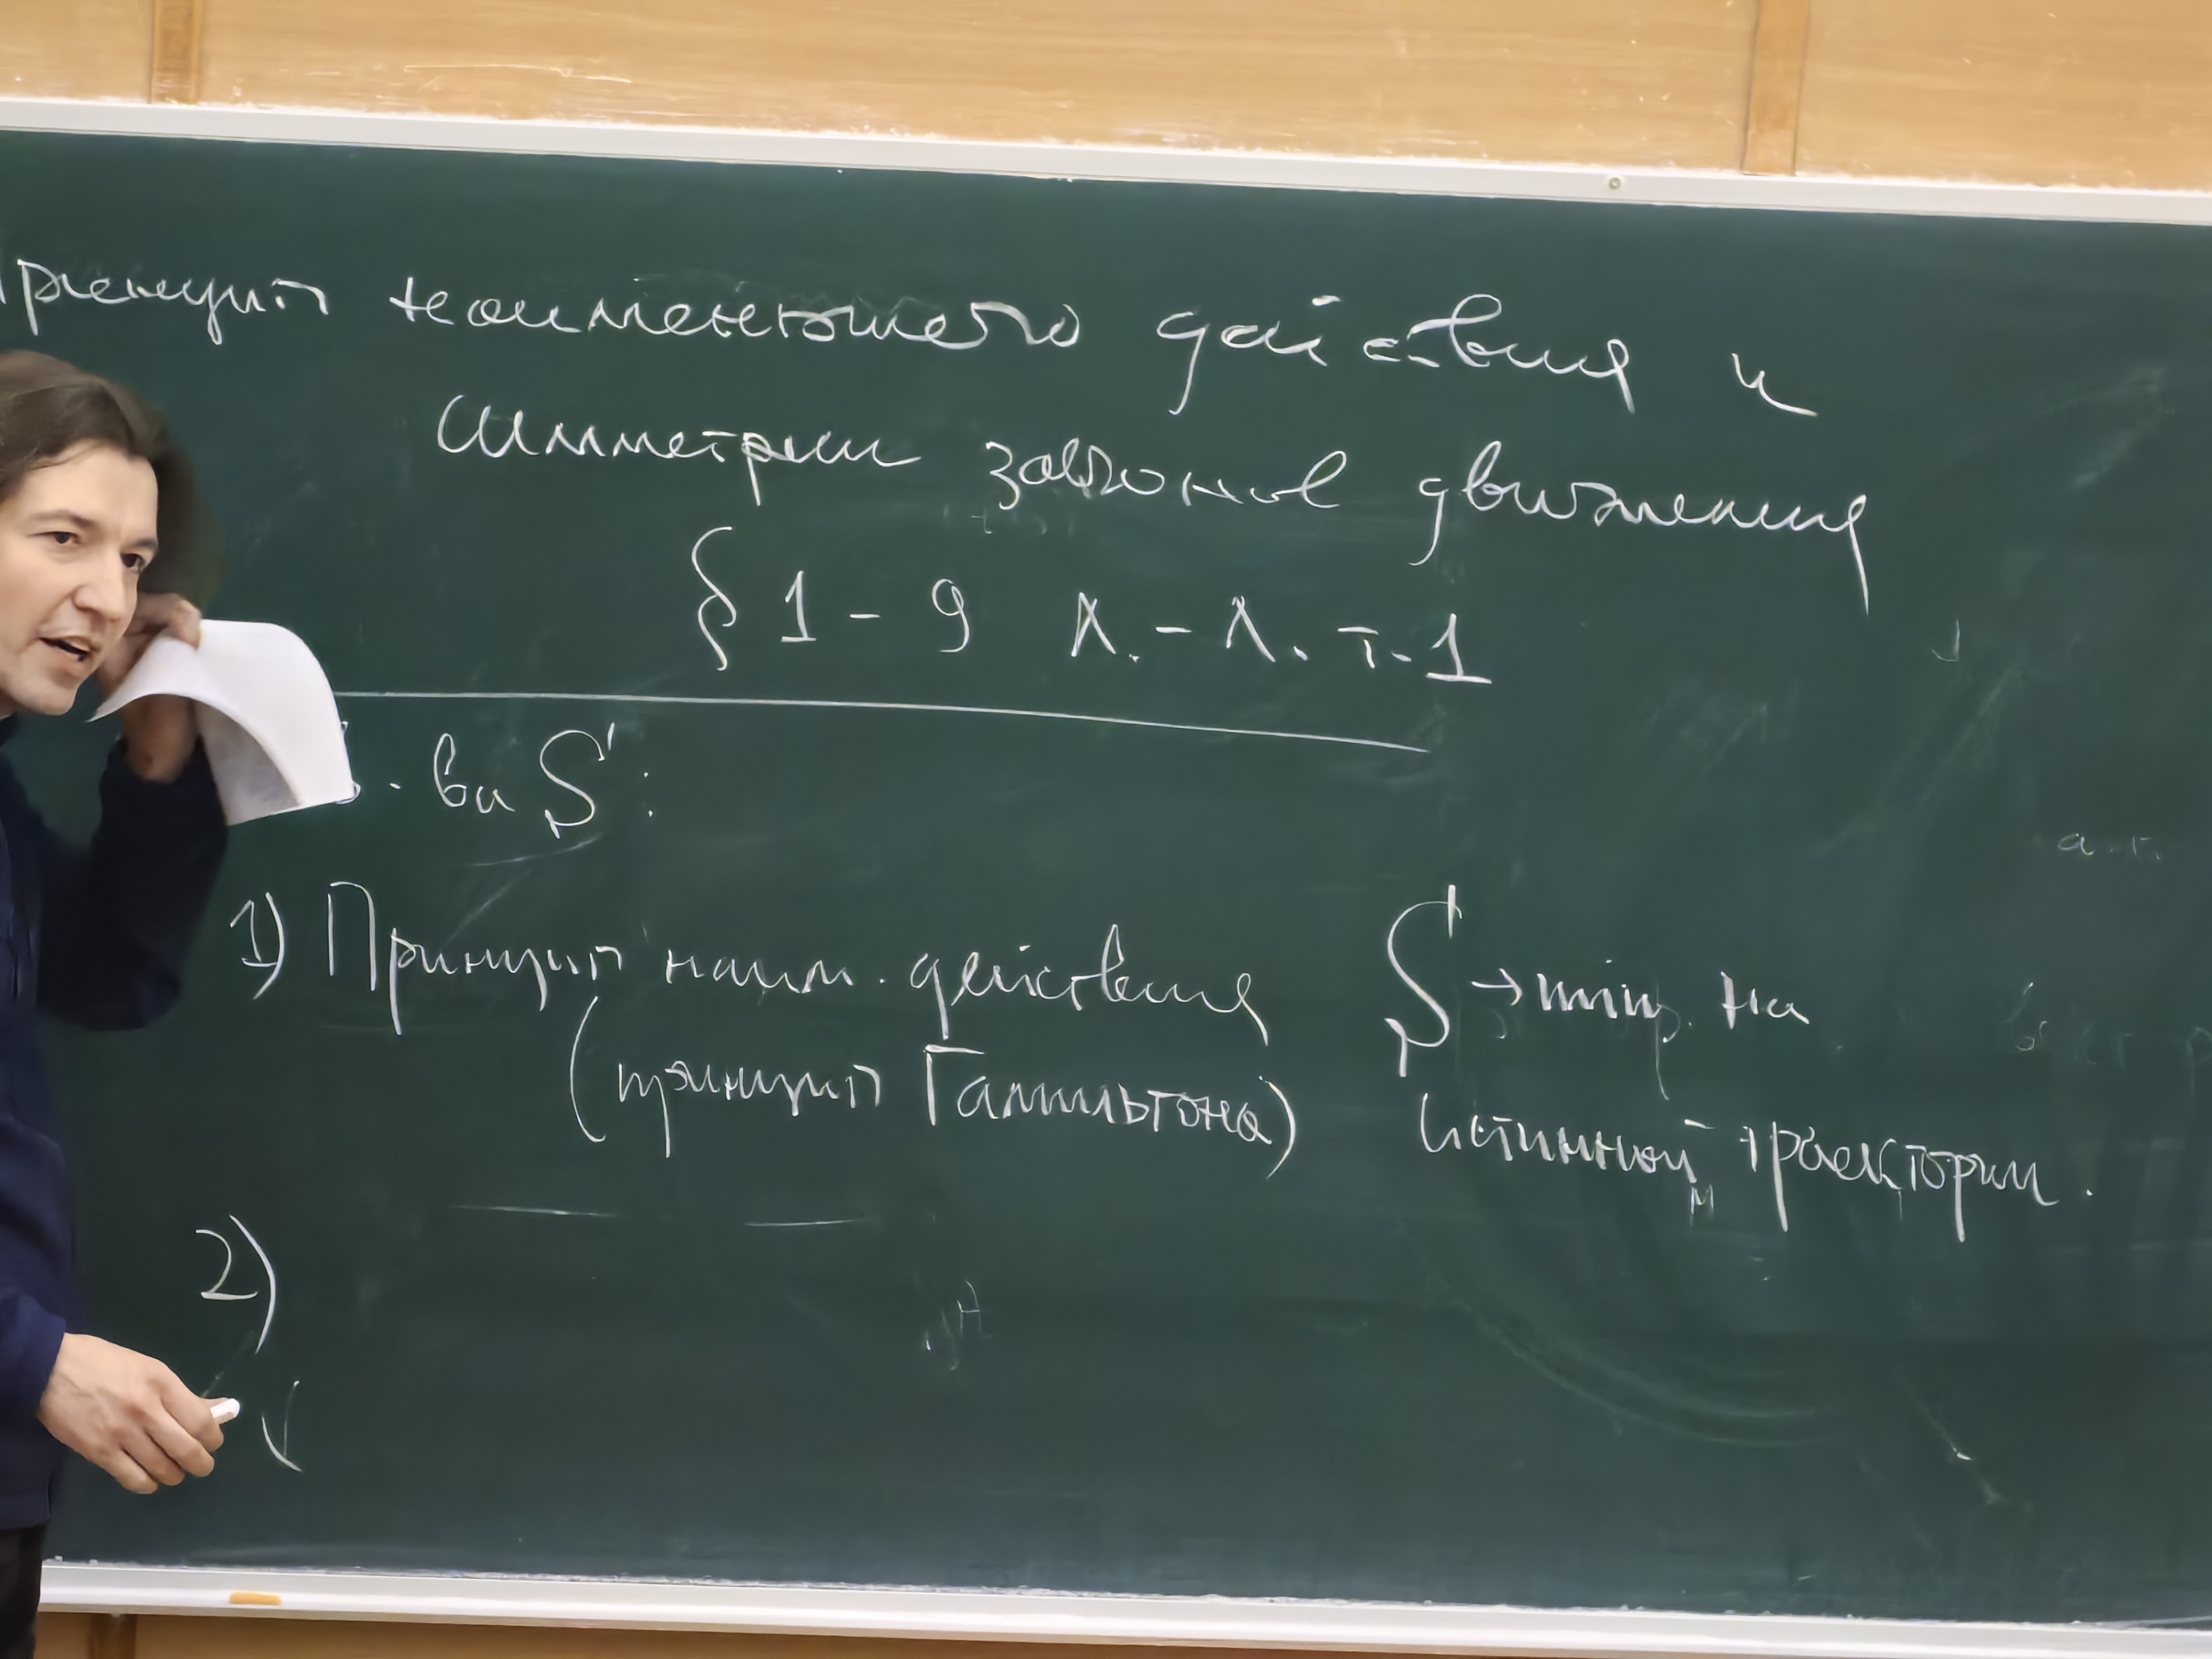 Принцип наименьшего действия и
симметрии законов движения
§ 1 - 9 Л. - Л. т. 1
- ва S:
1) Принцип наим. действия S → min. на
(принцип Гамильтона) истинной траектории.
2)